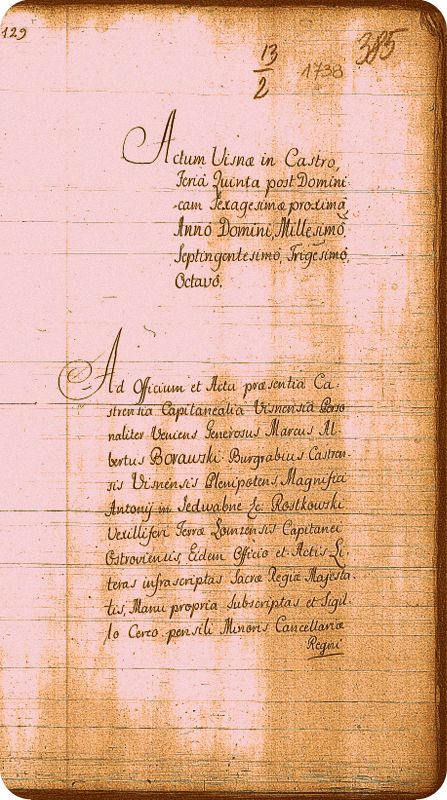 129
13
2
1738
385
Actum Visnæ in Castro,
Feria Quinta post Domini
cam Sexagesimæ proxima
Anno Domini, Millesimô,
Septingentesimô, Trigesimô,
Octavô.
Ad Officium et Acta præsentia Ca-
strensia Capitanealia Visnensia Perso
naliter Veniens Generosus Marcus Al
bertus Borawski Burgrabius Castren-
sis Visnensis Plenipotens Magnifici
Antonij in Jedwabne &c: Rostkowski
Vexilliferi Terræ Lomzensis Capitanei
Ostroviensis, Eidem Officio et Actis Li-
teras infrascriptas Sacræ Regiæ Majesta-
tis, Manu propria Subscriptas et Sigil-
lo Cereo pensili Minoris Cancellariæ
Regni